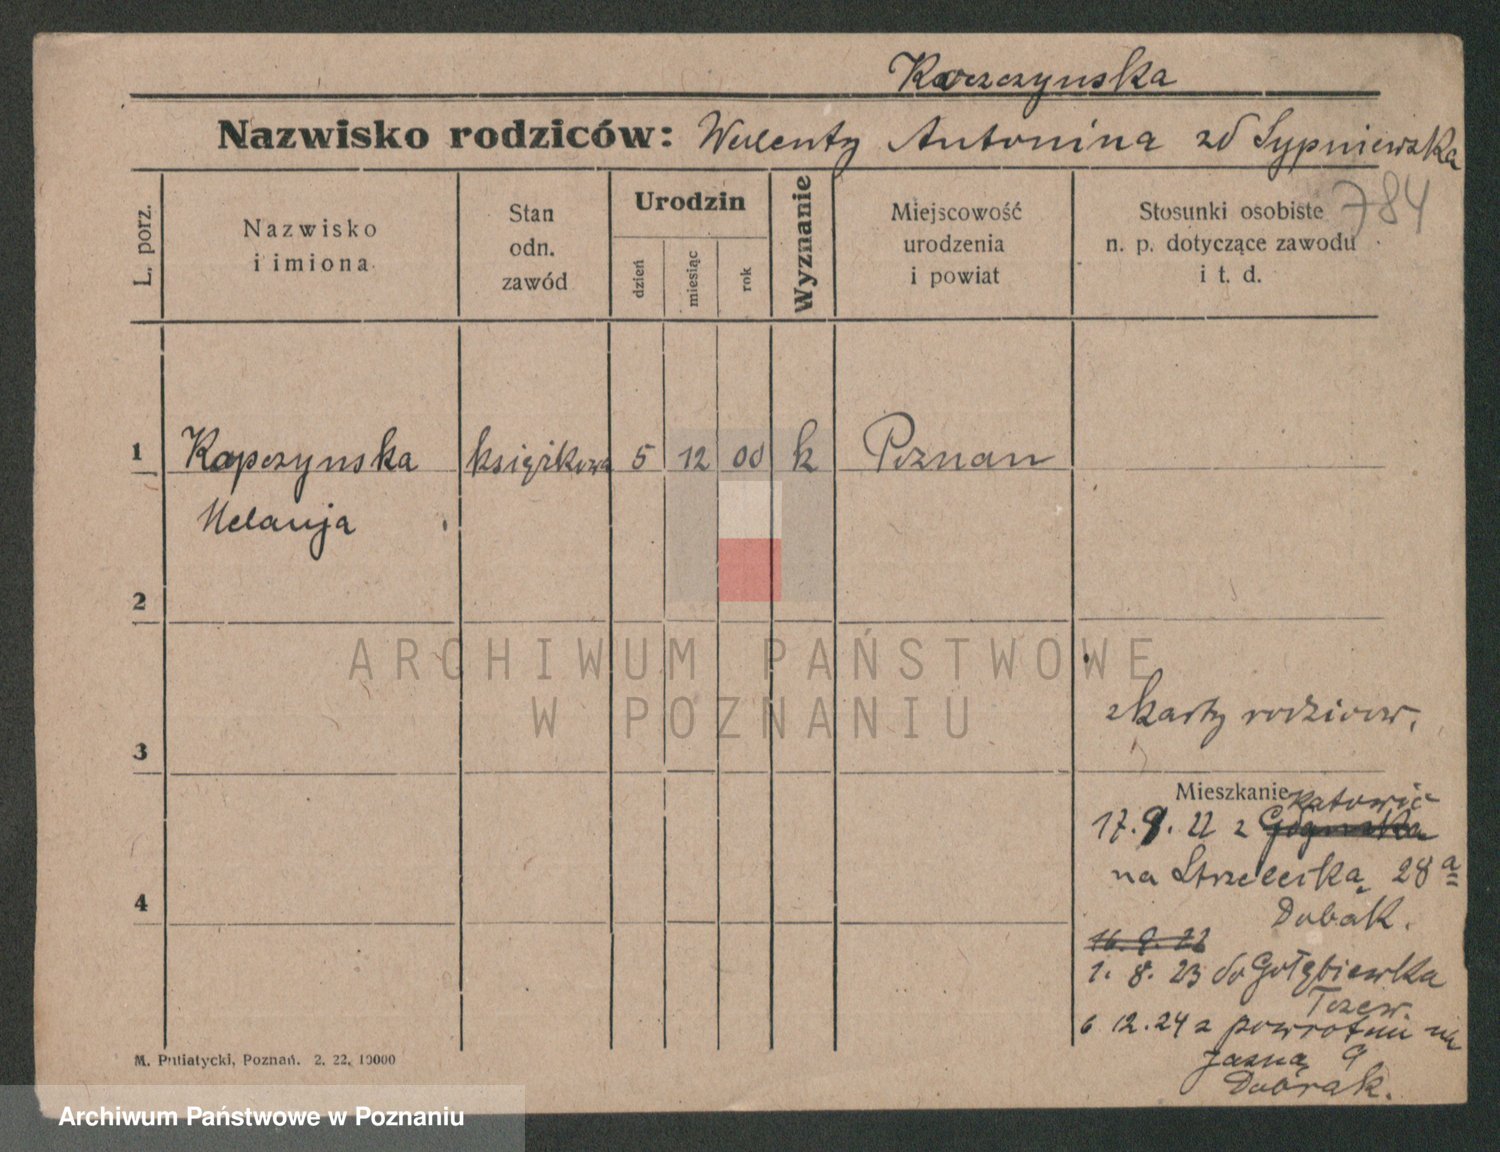 Karczynska
Nazwisko rodziców: Walenty Antonina zd Sypniewska
784
L. porz.
Nazwisko
i imiona
Stan
odn.
zawód
Urodzin
dzień
miesiąc
rok
Wyznanie
Miejscowość
urodzenia
i powiat
Stosunki osobiste
n. p. dotyczące zawodu
i t. d.
1
Kapczynska
książkowa
5
12
00
k
Poznan
Melanja
2
ARCHIWUM PAŃSTWOWE
W POZNANIU
z karty rodzicow.
3
Mieszkanie
Katowic
17. 9. 22 z
na Strzelecką 28 a
4
Dobak.
16. 9. 22
1. 8. 23 do Gołębiewka
Tczew.
6 12. 24 z powrotem na
Jasną 9
M. Putiatycki, Poznań. 2. 22. 10000
Archiwum Państwowe w Poznaniu